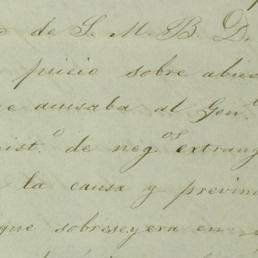 de S. M. B. D.
juicio sobre abu
acusaba al Gon.
ist.º de neg.os extrang
la causa y previn
que sobreseyera en